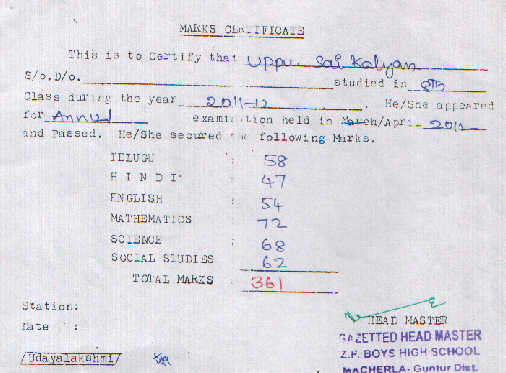 MARKS CERTIFICATE
This is to Certify that Uppu Sai Kalyan
S/o.D/o. studied in 8th
Class during the year 2011-12. He/She appeared
for Annual examination held in March/April 2012
and Passed. He/She secured the following Marks.
TELUGU : 58
HINDI : 47
ENGLISH : 54
MATHEMATICS : 72
SCIENCE : 68
SOCIAL STUDIES : 62
TOTAL MARKS : 361
Station:
Date :
HEAD MASTER
GAZETTED HEAD MASTER
Z.P. BOYS HIGH SCHOOL
MACHERLA- Guntur Dist.
/Udayalakshmi/